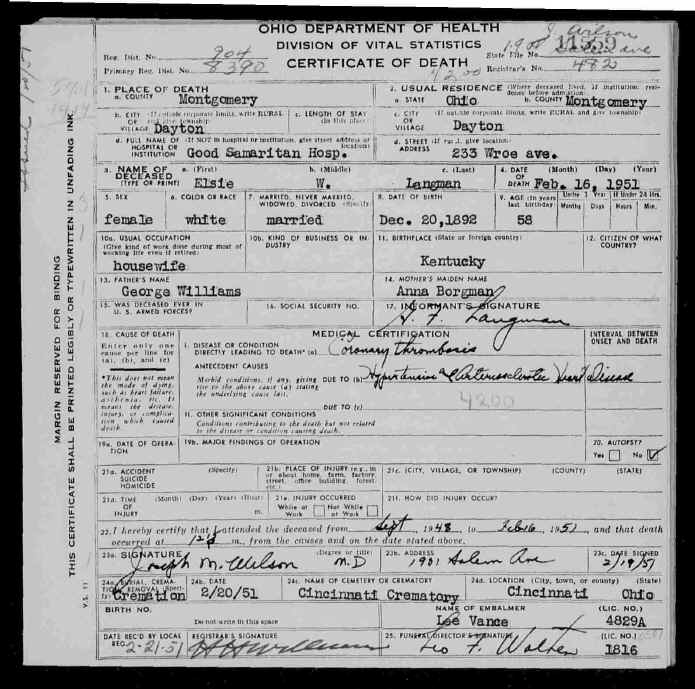 OHIO DEPARTMENT OF HEALTH
DIVISION OF VITAL STATISTICS
CERTIFICATE OF DEATH
J. Wilson
1901 Salem ave
Reg. Dist. No. 904
State File No. 11559
Primary Reg. Dist. No. 8390
4200
Registrar's No. 482
1. PLACE OF DEATH
a. COUNTY Montgomery
2. USUAL RESIDENCE (Where deceased lived. If institution: residence before admission)
a. STATE Ohio b. COUNTY Montgomery
b. CITY (If outside corporate limits, write RURAL and give township) OR VILLAGE Dayton
c. LENGTH OF STAY (in this place)
c. CITY (If outside corporate limits, write RURAL and give township) OR VILLAGE Dayton
d. FULL NAME OF (If NOT in hospital or institution, give street address or location) HOSPITAL OR INSTITUTION Good Samaritan Hosp.
d. STREET (If rural, give location) ADDRESS 233 Wroe ave.
3. NAME OF DECEASED (TYPE OR PRINT)
a. (First) Elsie
b. (Middle) W.
c. (Last) Langman
4. DATE OF DEATH (Month) (Day) (Year) Feb. 16, 1951
5. SEX female
6. COLOR OR RACE white
7. MARRIED, NEVER MARRIED, WIDOWED, DIVORCED (Specify) married
8. DATE OF BIRTH Dec. 20,1892
9. AGE (In years last birthday) 58
Under 1 Year Months Days
If Under 24 Hrs. Hours Min.
10a. USUAL OCCUPATION (Give kind of work done during most of working life even if retired) housewife
10b. KIND OF BUSINESS OR INDUSTRY
11. BIRTHPLACE (State or foreign country) Kentucky
12. CITIZEN OF WHAT COUNTRY?
13. FATHER'S NAME George Williams
14. MOTHER'S MAIDEN NAME Anna Borgman
15. WAS DECEASED EVER IN U. S. ARMED FORCES?
16. SOCIAL SECURITY NO.
17. INFORMANT'S SIGNATURE H. F. Langman
18. CAUSE OF DEATH
Enter only one cause per line for (a), (b), and (c)
*This does not mean the mode of dying, such as heart failure, asthenia, etc. It means the disease, injury, or complication which caused death.
MEDICAL CERTIFICATION
INTERVAL BETWEEN ONSET AND DEATH
I. DISEASE OR CONDITION DIRECTLY LEADING TO DEATH* (a) Coronary thrombosis
ANTECEDENT CAUSES
Morbid conditions, if any, giving rise to the above cause (a) stating the underlying cause last.
DUE TO (b) Hypertensive & Arteriosclerotic Heart Disease
4200
DUE TO (c)
II. OTHER SIGNIFICANT CONDITIONS
Conditions contributing to the death but not related to the disease or condition causing death.
19a. DATE OF OPERATION
19b. MAJOR FINDINGS OF OPERATION
20. AUTOPSY?
Yes No
21a. ACCIDENT SUICIDE HOMICIDE (Specify)
21b. PLACE OF INJURY (e.g., in or about home, farm, factory, street, office building, forest, etc.)
21c. (CITY, VILLAGE, OR TOWNSHIP) (COUNTY) (STATE)
21d. TIME OF INJURY (Month) (Day) (Year) (Hour) m.
21e. INJURY OCCURRED While at Work Not While at Work
21f. HOW DID INJURY OCCUR?
22. I hereby certify that I attended the deceased from Sept 1948 to Feb 16 1951 and that death
occurred at m., from the causes and on the date stated above.
23a. SIGNATURE (Degree or title) Joseph M. Wilson M.D
23b. ADDRESS 1901 Salem Ave
23c. DATE SIGNED 2/19/51
24a. BURIAL, CREMATION, REMOVAL (Specify) Cremation
24b. DATE 2/20/51
24c. NAME OF CEMETERY OR CREMATORY Cincinnati Crematory
24d. LOCATION (City, town, or county) (State) Cincinnati Ohio
BIRTH NO.
Do not write in this space
NAME OF EMBALMER Lee Vance
(LIC. NO.) 4829A
DATE REC'D BY LOCAL REG. 2-21-51
REGISTRAR'S SIGNATURE
25. FUNERAL DIRECTOR'S SIGNATURE Leo F. Walter
(LIC. NO.) 1816
MARGIN RESERVED FOR BINDING
THIS CERTIFICATE SHALL BE PRINTED LEGIBLY OR TYPEWRITTEN IN UNFADING INK.